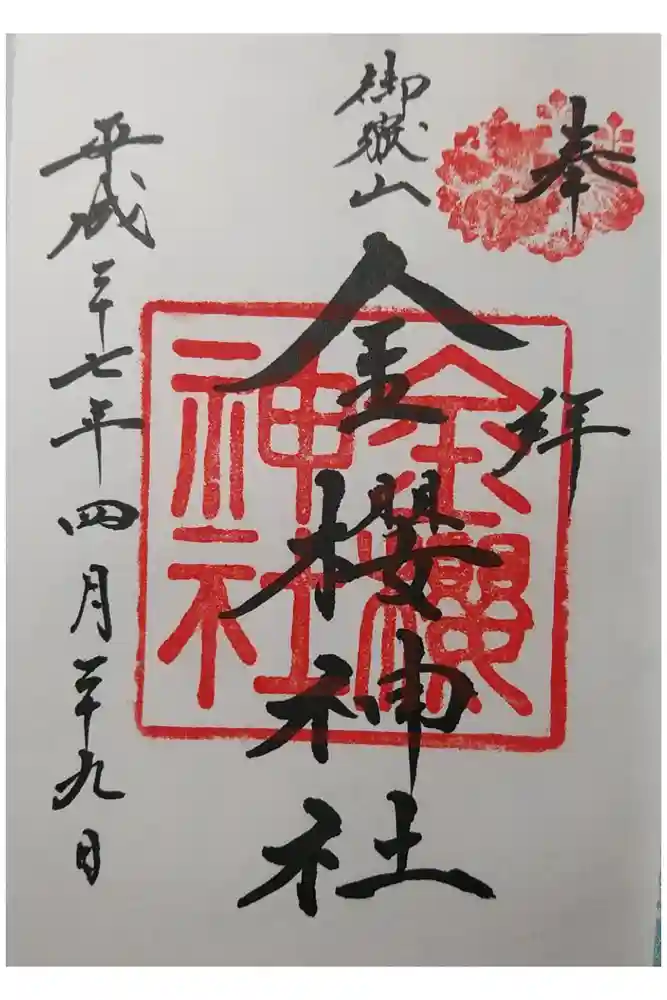 奉拝
御嶽山
金櫻神社
平成二十七年四月二十九日
金櫻
神社